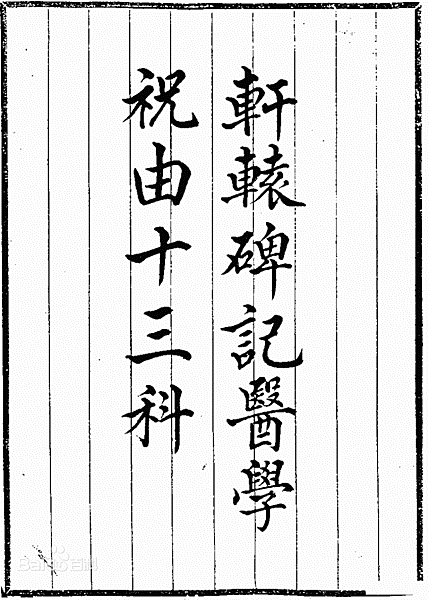 軒轅碑記醫學
祝由十三科
Baidu百科